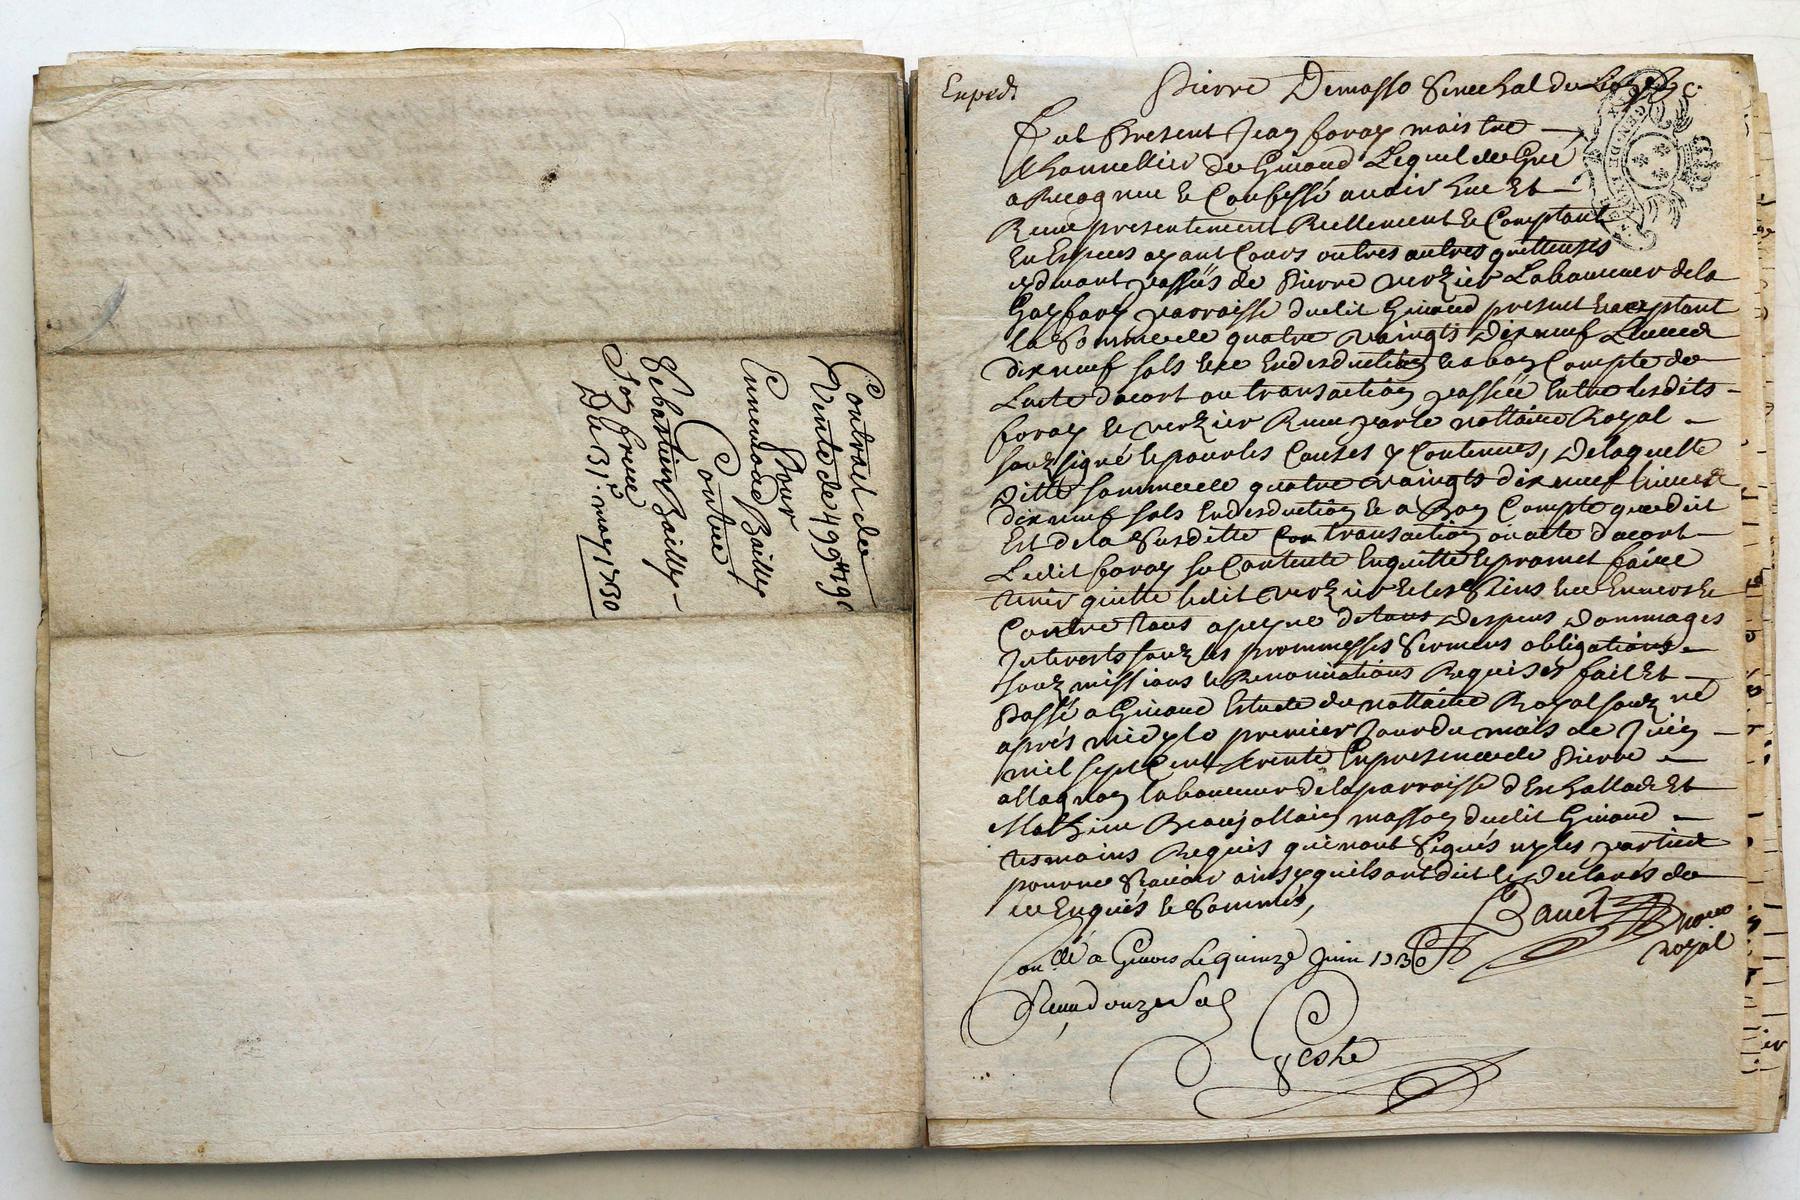 Contract de
Vente de 499ᵗᵗ 19ˢ
Pour
Ennemode Bailly
Contre
Sebastien Bailly
Son frere
Du 31ᵉ may 1730
Exped.
Pierre Demasso Senechal de
Fut Present Jean foray maistre
de Givord Lequel de Gré
a Recognu & Confessé avoir heu Et
Receu presentement Reellement & Comptant
En Especes ayant Cours outres autres quittences
cydevant passés de Pierre verzier Laboureur de la
parroisse dudit Givord present & acceptant
la Somme de quatre vaingts dix neuf Livres
dix neuf sols & ce En desduction & a bon Compte de
Lacte dacort ou transaction passée Entre lesdits
foray & verzier Receu par le nottaire Royal
souzsigné & pour les Causes y Contenues, De laquelle
Ditte somme de quatre vaingts dix neuf livres
dix neuf sols En desduction & a Bon Compte que dit
Est de la Susditte transaction ou acte dacort
Ledit foray se Contente En quitte & promet faire
tenir quitte ledit verzier & les Siens & ce Envers &
Contre tous a peyne de tous Despens Dommages
Interests souz les prommesses Sermens obligations
souzmissions & Renonciations Requises fait Et
Passé a Givord Estude du nottaire Royal souzné
aprés midy le premier Jour du mois de Juin
mil sept Cent trente En presence de Pierre
allagnon laboureur de la parroisse d'Eschallas Et
Mathieu Beaujollain masson dudit Givord
tesmoins Requis qui nont Signés ny les parties
pour ne Scavoir ainsy quils ont dit & Declarés de
ce Enquis & Sommés,
Banet
no.re
royal
Con.llé a Givors Le quinze Juin 1730
Receu douze Sols
Geste